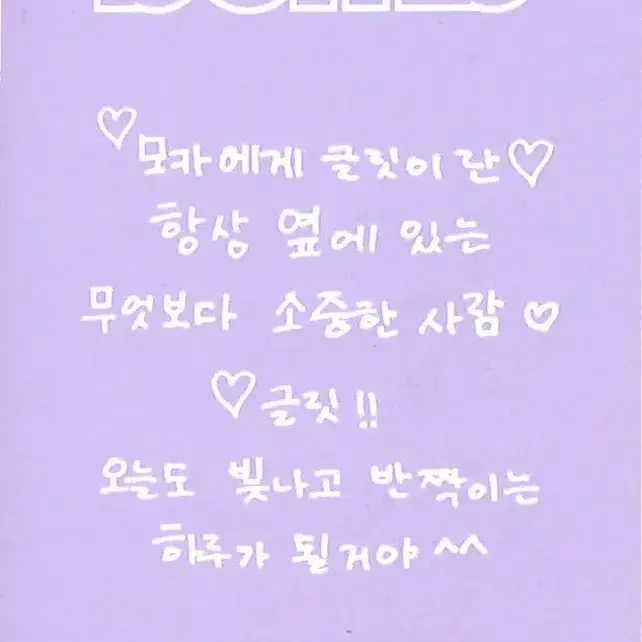 ♡모카에게 글릿이란♡
항상 옆에 있는
무엇보다 소중한 사람 ♡
♡글릿!!
오늘도 빛나고 반짝이는
하루가 될거야 ^^